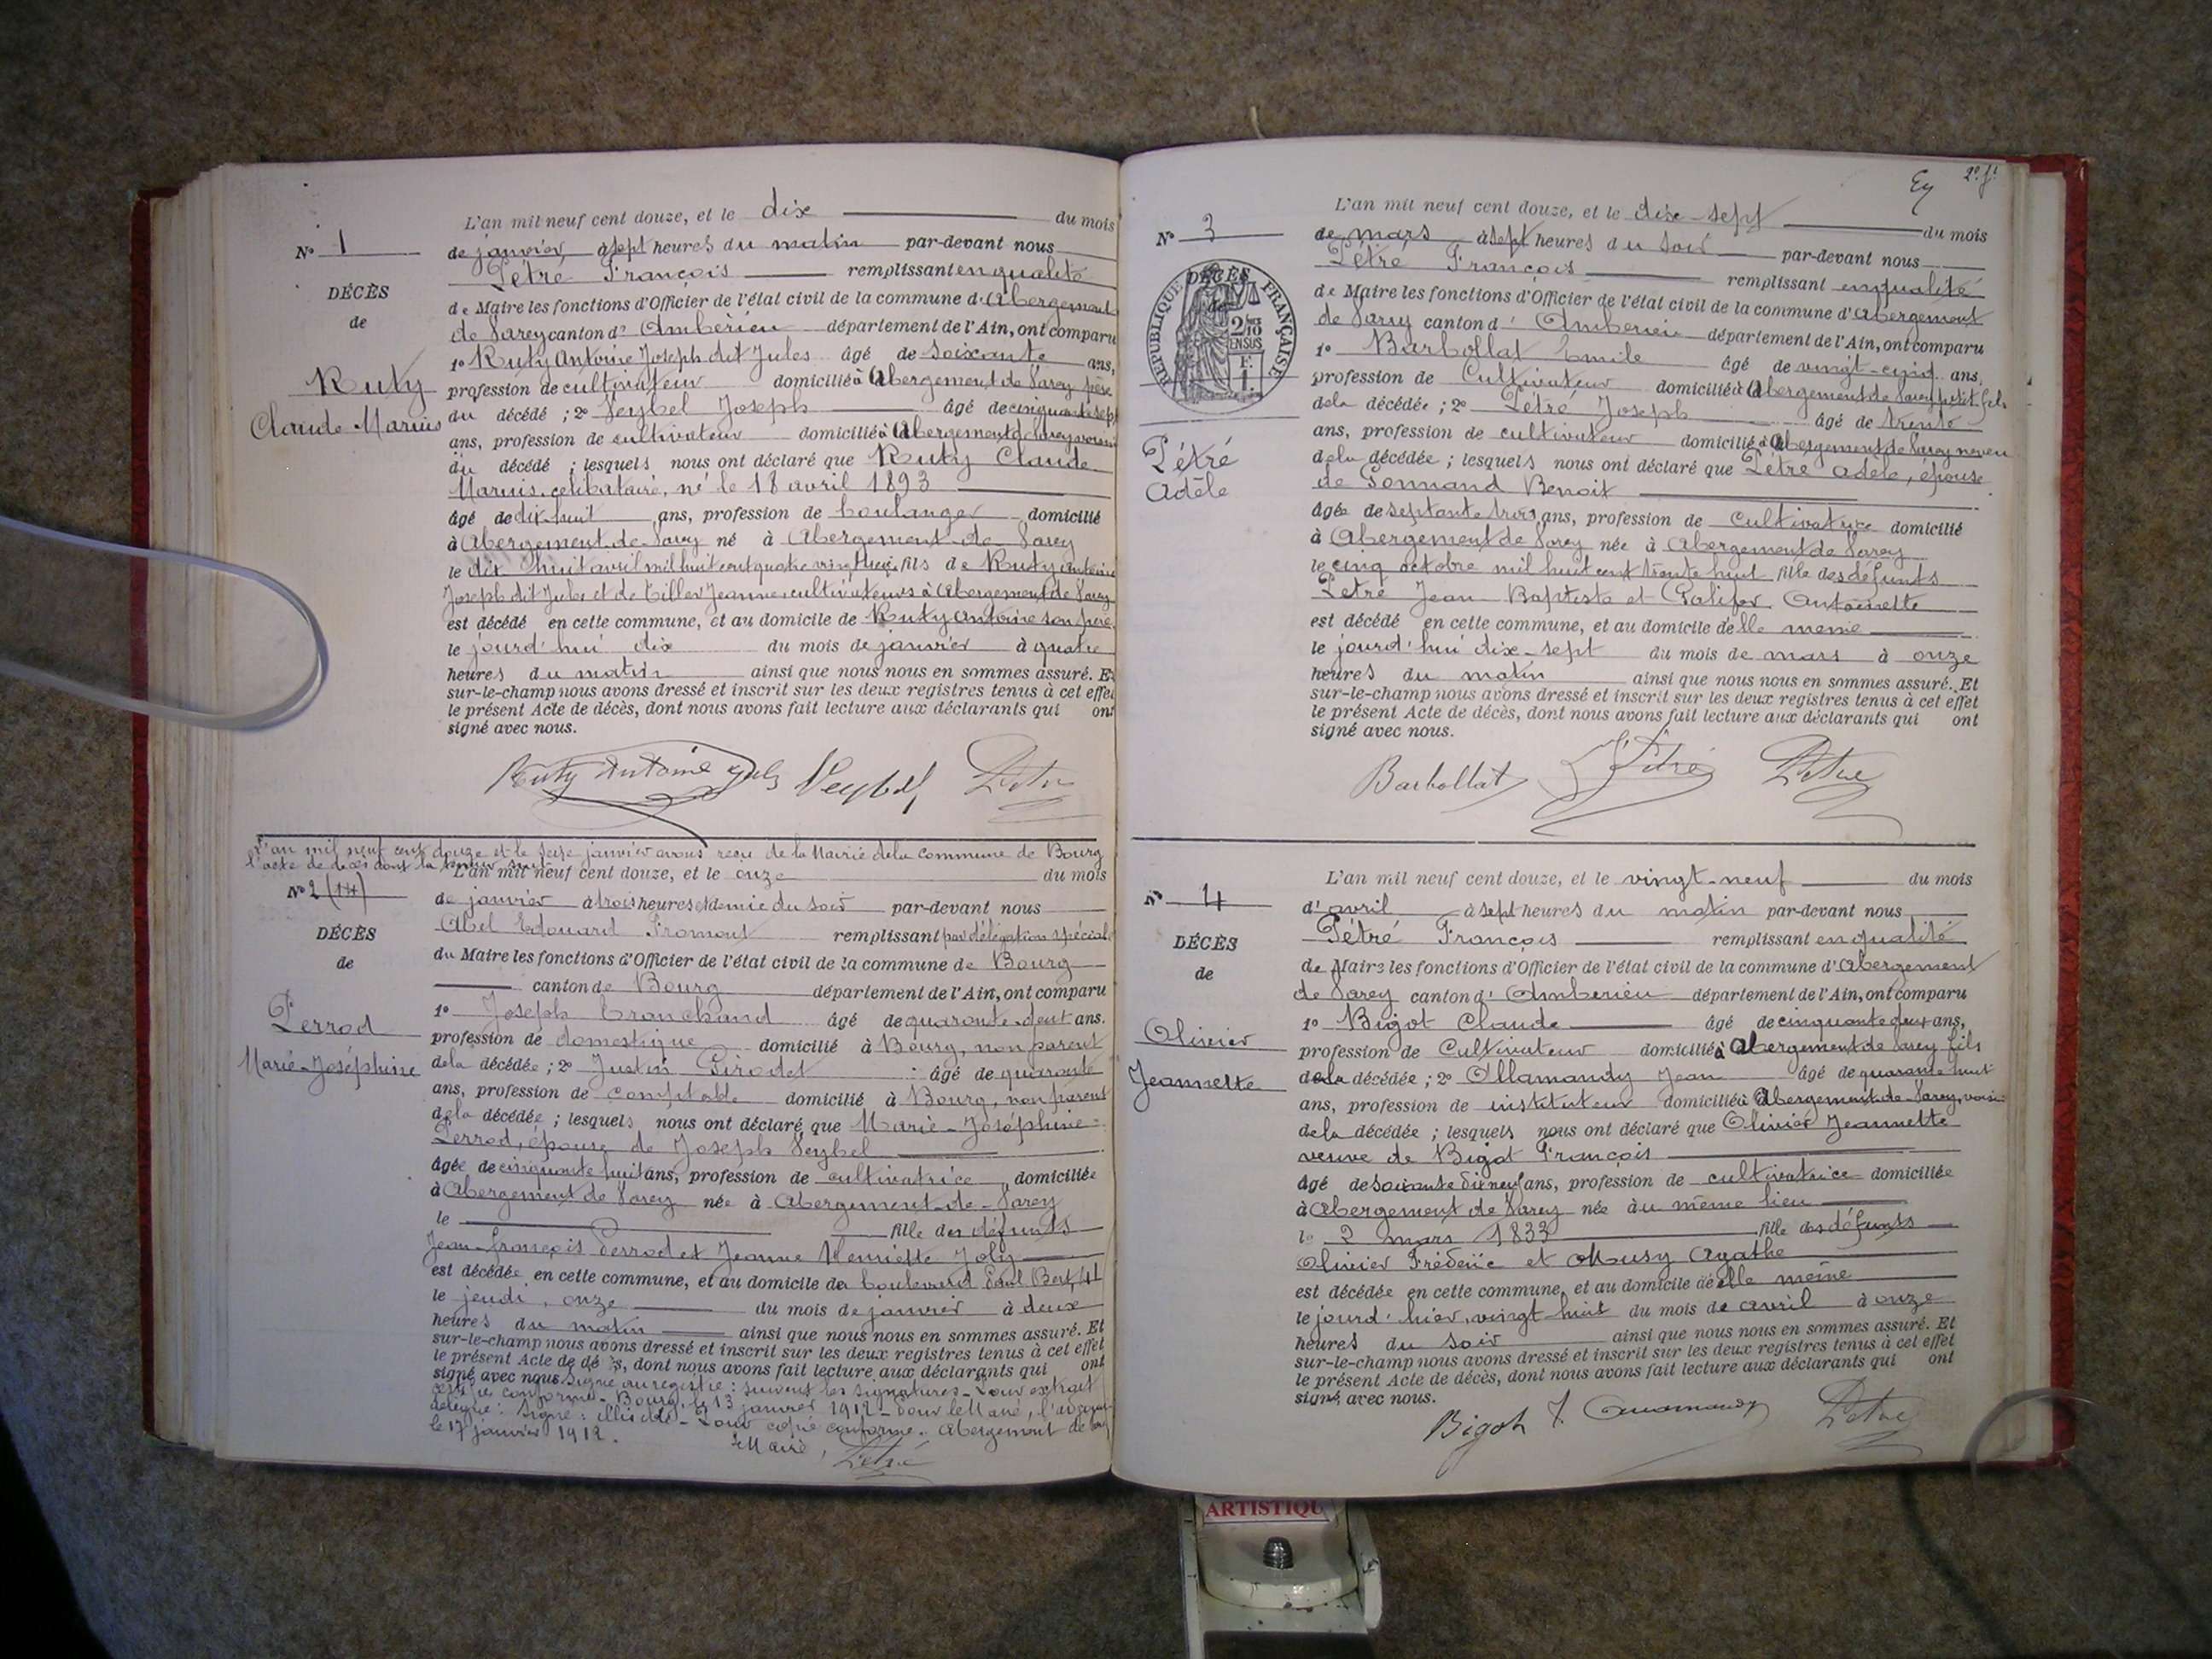 L'an mil neuf cent douze, et le dix du mois
N° 1
de janvier à sept heures du matin par-devant nous
Pétré François remplissant en qualité
DÉCÈS
de Maire les fonctions d'Officier de l'état civil de la commune d'Abergement
de
de Varey canton d' Ambérieu département de l'Ain, ont comparu
1° Ruty Antoine Joseph dit Jules âgé de soixante ans,
Ruty
profession de cultivateur domicilié à Abergement de Varey père
Claude Marius
du décédé ; 2° Veybel Joseph âgé de cinquante sept
ans, profession de cultivateur domicilié à Abergement de Varey voisin
du décédé ; lesquels nous ont déclaré que Ruty Claude
Marius, célibataire, né le 18 avril 1893
âgé de dix huit ans, profession de boulanger domicilié
à Abergement de Varey né à Abergement de Varey
le dix huit avril mil huit cent quatre vingt treize fils de Ruty Antoine
Joseph dit Jules et de Tiller Jeanne, cultivateurs à Abergement de Varey
est décédé en cette commune, et au domicile de Ruty Antoine son père,
le jourd'hui dix du mois de janvier à quatre
heures du matin ainsi que nous nous en sommes assuré. Et
sur-le-champ nous avons dressé et inscrit sur les deux registres tenus à cet effet
le présent Acte de décès, dont nous avons fait lecture aux déclarants qui ont
signé avec nous.
Ruty Antoine Jules Veybel Pétré
L'an mil neuf cent douze et le seize janvier avons reçu de la Mairie de la commune de Bourg
l'acte de décès dont la teneur suit
L'an mil neuf cent douze, et le onze du mois
N° 2 (14)
de janvier à trois heures et demie du soir par-devant nous
Abel Edouard Fromont remplissant par délégation spéciale
DÉCÈS
du Maire les fonctions d'Officier de l'état civil de la commune de Bourg
de
canton de Bourg département de l'Ain, ont comparu
1° Joseph Cronchand âgé de quarante-deux ans.
Perrod
profession de domestique domicilié à Bourg, non parent
Marie-Joséphine
de la décédée ; 2° Justin Pirodet âgé de quarante
ans, profession de comptable domicilié à Bourg, non parent
de la décédée ; lesquels nous ont déclaré que Marie-Joséphine
Perrod, épouse de Joseph Veybel
âgée de cinquante huit ans, profession de cultivatrice domiciliée
à Abergement de Varey née à Abergement-de-Varey
le fille des défunts
Jean-François Perrod et Jeanne Henriette Joly
est décédée en cette commune, et au domicile de boulevard Paul Bert, 41
le jeudi, onze du mois de janvier à deux
heures du matin ainsi que nous nous en sommes assuré. Et
sur-le-champ nous avons dressé et inscrit sur les deux registres tenus à cet effet
le présent Acte de décès, dont nous avons fait lecture aux déclarants qui ont
signé avec nous. Signé au registre : suivent les signatures - Pour extrait
certifié conforme. Bourg, le 13 janvier 1912 - Pour le Maire, l'adjoint
délégué : Signé : illisible - Pour copie conforme. Abergement de Varey
le 17 janvier 1912.
Le Maire, Pétré
Ey 2e ft
L'an mil neuf cent douze, et le dix-sept du mois
N° 3
de mars à sept heures du soir par-devant nous
Pétré François remplissant en qualité
DÉCÈS
de
REPUBLIQUE FRANÇAISE
2/10 EN SUS
F. 1.
de Maire les fonctions d'Officier de l'état civil de la commune d'Abergement
de Varey canton d' Ambérieu département de l'Ain, ont comparu
1° Barbollat Emile âgé de vingt-cinq ans,
profession de Cultivateur domicilié à Abergement de Varey petit fils
de la décédée ; 2° Pétré Joseph âgé de trente
ans, profession de cultivateur domicilié à Abergement de Varey neveu
Pétré
Adèle
de la décédée ; lesquels nous ont déclaré que Pétré Adèle, épouse
de Ponnand Benoit
âgée de septante trois ans, profession de Cultivatrice domicilié
à Abergement de Varey née à Abergement de Varey
le cinq octobre mil huit cent trente huit fille des défunts
Pétré Jean Baptiste et Antoinette
est décédé en cette commune, et au domicile d'elle même
le jourd'hui dix-sept du mois de mars à onze
heures du matin ainsi que nous nous en sommes assuré. Et
sur-le-champ nous avons dressé et inscrit sur les deux registres tenus à cet effet
le présent Acte de décès, dont nous avons fait lecture aux déclarants qui ont
signé avec nous.
Barbollat J. Pétré Pétré
L'an mil neuf cent douze, et le vingt-neuf du mois
N° 4
d'avril à sept heures du matin par-devant nous
Pétré François remplissant en qualité
DÉCÈS
de Maire les fonctions d'Officier de l'état civil de la commune d'Abergement
de
de Varey canton d' Ambérieu département de l'Ain, ont comparu
1° Bigot Claude âgé de cinquante deux ans,
Olivier
profession de Cultivateur domicilié à Abergement de Varey fils
Jeannette
de la décédée ; 2° Ollamandy Jean âgé de quarante huit
ans, profession de instituteur domicilié à Abergement-de-Varey, voisin
de la décédée ; lesquels nous ont déclaré que Olivier Jeannette
veuve de Bigot François
âgé de soixante dix neuf ans, profession de cultivatrice domiciliée
à Abergement de Varey née au même lieu
le 2 mars 1833 fille des défunts
Olivier Frédéric et Musy Agathe
est décédée en cette commune, et au domicile de elle même
le jourd'hier, vingt huit du mois de avril à onze
heures du soir ainsi que nous nous en sommes assuré. Et
sur-le-champ nous avons dressé et inscrit sur les deux registres tenus à cet effet
le présent Acte de décès, dont nous avons fait lecture aux déclarants qui ont
signé avec nous.
Bigot J. Pétré
ARTISTIQU